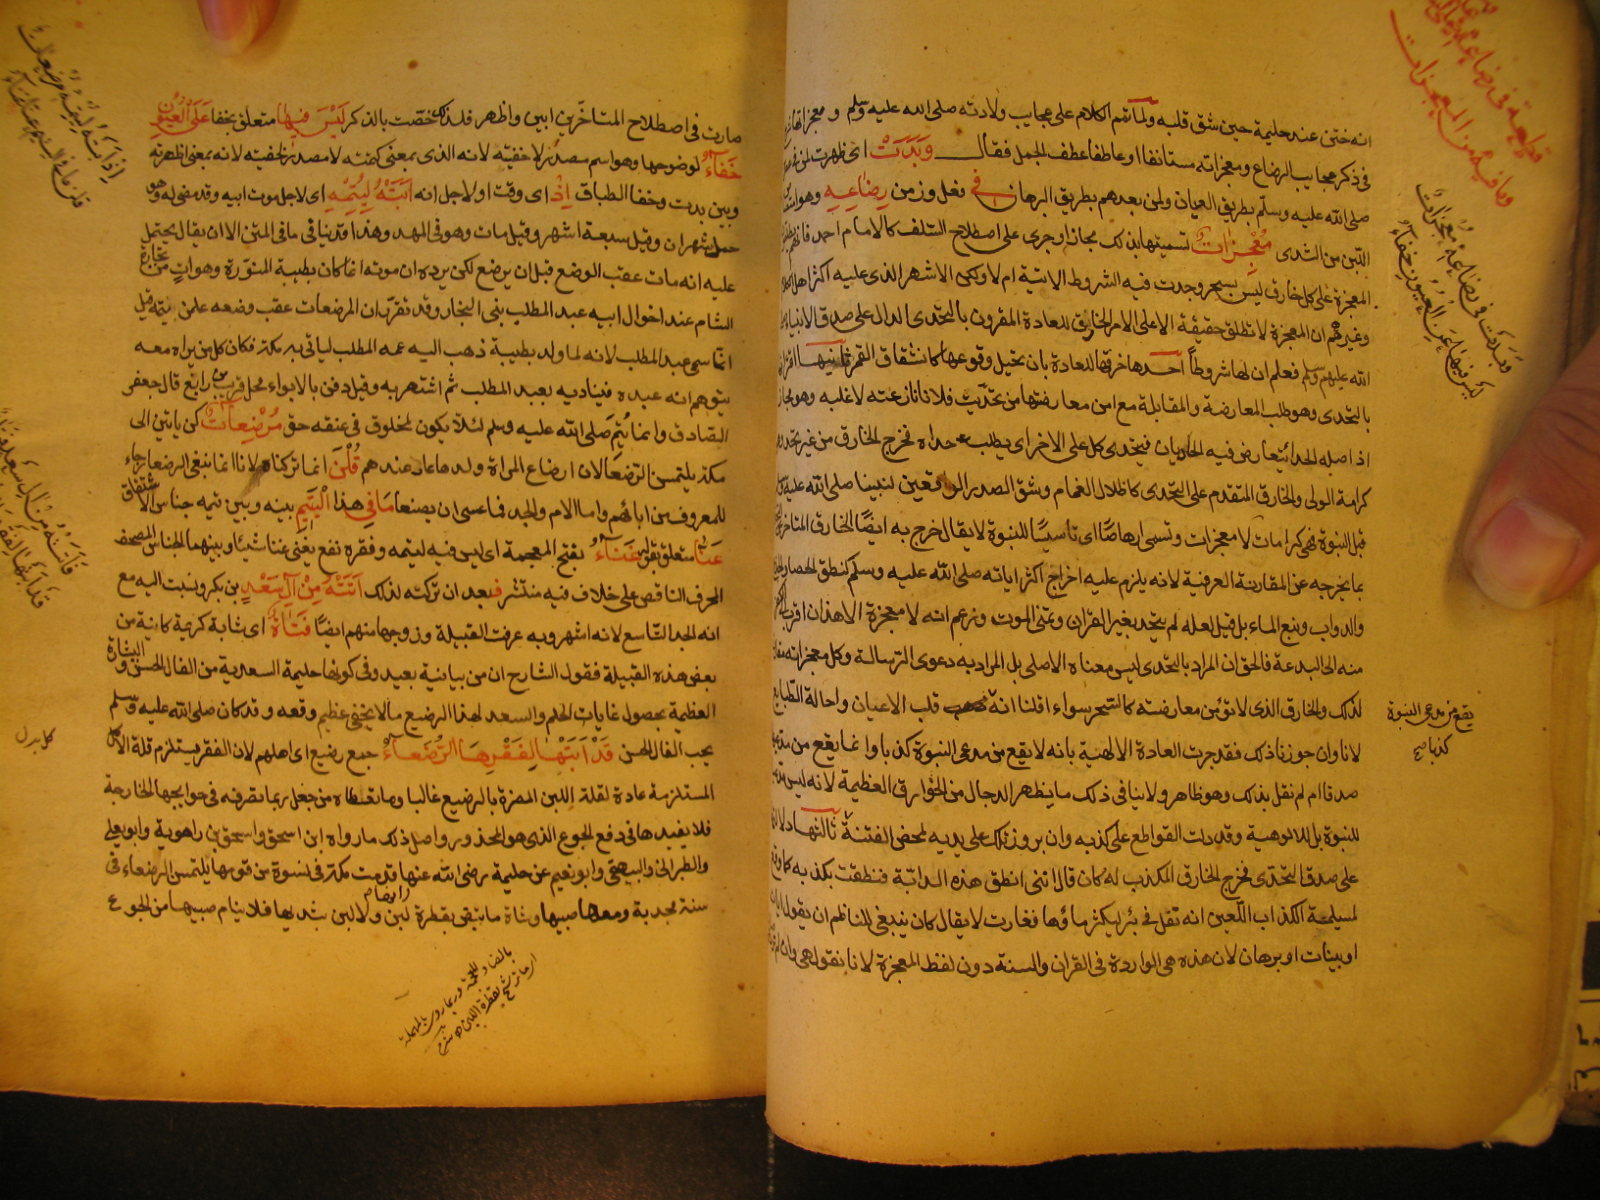 انه ختن عند حليمة حين شق قلبه ولما تم الكلام على عجايب ولادته صلى الله عليه وسلم و
فى ذكر عجايب الرضاع ومعجزاته مستانفا او عاطفا عطف الجمل فقال وبدت اى ظهرت
صلى الله عليه وسلم بطريق العيان ولمن بعدهم بطريق البرهان فى فعل وزمن رضاعه وهو
اللبن من الثدى معجزات تسميتها بذلك مجاز او جرى على اصطلاح السلف كالامام احمد
المعجزة على كل خارق ليس بسحر وجدت فيه الشروط الاتية ام لا ولكن الاشهر الذى عليه اكثر
وغيرهم ان المعجزة لا تطلق حقيقة الا على الامر الخارق للعادة المقرون بالتحدى الدال على صدق الانبياء
الله عليهم وسلم فعلم ان لها شروطا احدها خرقها للعادة بان يخيل وقوعها كانشقاق القمر ثانيها
بالتحدى وهو طلب المعارضة والمقابلة مع امن معارضتها من تحديت فلانا نازعته لاغلبه وهو
اذ اصله لحدا يتعارض فيه الحاديان فيتحدى كل على الاخر اى يطلب حداه فخرج الخارق من غير
كرامة الولى والخارق المتقدم على التحدى كاظلال الغمام وشق الصدر الواقعين لنبينا صلى الله عليه
قبل النبوة فهى كرامات لا معجزات وتسمى ارهاصا اى تاسيسا للنبوة لا يقال خرج به ايضا الخارق المتاخر
بما يخرجه عن المقارنة العرفية لانه يلزم عليه اخراج اكثر اياته صلى الله عليه وسلم كنطق
والدواب ونبع الماء بل قيل لعله لم يتحد بغير القران وتمنى الموت وزعم انه لا معجزة الا هذان اقرب
منه الى البدعة فالحق ان المراد بالتحدى ليس معناه الاصلى بل المراد به دعوى الرسالة وكل معجزاته
لذلك والخارق الذى لا تؤمن معارضته كالسحر سواء اقلنا انه قلب الاعيان واحالة الطبايع
لانا وان جوزنا ذلك فقد جرت العادة الالهية بانه لا يقع من مدعى النبوة كذبا وانما يقع من
صدقا ام لم نقل بذلك وهو ظاهر ولا ينافى ذلك ما يظهر الدجال من الخوارق العظيمة لانه ليس
للنبوة بل للالوهية وقد دلت القواطع على كذبه وان بروز ذلك على يديه لمحض الفتنة ثالثها
على صدق التحدى فخرج الخارق المكذب له كان قال ايتى انطق هذه الدابة فنطقت بكذبه كما وقع
لمسيلمة الكذاب اللعين انه تفل فى بئر ليكثر ماؤها فغارت لا يقال كان ينبغى للناظم ان يقول
او بينات او برهان لان هذه هى الواردة فى القران والسنة دون لفظ المعجزة لانا نقول هى وان
وبدت فى رضاعه معجزات
ليس فيها عن العيون خفاء
يقع من مدعى النبوة
كذبا صح
صارت فى اصطلاح المتاخرين ابين واظهر فلذلك خصت بالذكر ليس فيها متعلق بخفا على العيون
خفاء لوضوحها وهو اسم مصدر لاخفيته لانه الذى بمعنى كتمته لا مصدر لخفيته لانه بمعنى اظهرته
وبين بدت وخفا الطباق اذ اى وقت او لاجل انه ابته ليتمه اى لاجل موت ابيه وقد مضى له وهو
حمل شهران وقيل سبعة اشهر وقيل مات وهو فى المهد وهذا اقد ينافى ما فى المتن الا ان يقال يحتمل
عليه انه مات عقب الوضع قبل ان يرضع لكن يرده ان موته انما كان بطيبة المنورة وهو ات من تجارة
الشام عند اخوال ابيه عبد المطلب بنى النجار وقد تقرر ان المرضعات عقب وضعه علمن يتمه قيل
انما سمى عبد المطلب لانه لما ولد بطيبة ذهب اليه عمه المطلب لياتى به مكة فكان كل من يراه معه
يتوهم انه عبده فيناديه بعبد المطلب ثم اشتهر به وقيل دفن بالابواء محل قريب من رابغ قال جعفر
الصادق وانما يتم صلى الله عليه وسلم لئلا يكون لمخلوق فى عنقه حق مرضعات كن ياتين الى
مكة يلتمسن الرضعا لان ارضاع المراة ولدها عار عندهم قلن انما تركناه لانا انما نبغى الرضعا رجاء
للمعروف من ابائهم واما الام والجد فما عسى ان يصنعا ما فى هذا اليتيم بينه وبين يتمه جناس الاشتقاق
عنا متعلق بقوله غناء بفتح المعجمة اى ليس فيه ليتمه وفقره نفع يغنى عنا شيئا وبينهما الجناس المصحف
المحرف الناقص على خلاف فيه منتشر فبعد ان تركته لذلك اتته من آل سعد بن بكر ونسبت اليه مع
انه الجد التاسع لانه اشهر وبه عرفت القبيلة وزوجها منهم ايضا فتاة اى شابة كريمة كاينة من
بعض هذه القبيلة فقول الشارح ان من بيانية بعيد وفى كونها حليمة السعدية من الفال الحسن والبشارة
العظيمة بحصول غايات الحلم والسعد لهذا الرضيع ما لا يخفى عظيم وقعه وقد كان صلى الله عليه وسلم
يحب الفال الحسن قد ابتها لفقرها الرضعاء جمع رضيع اى اهلهم لان الفقر يستلزم قلة الاكل
المستلزمة عادة لقلة اللبن المضرة بالرضيع غالبا وما تعطاه من جعل ربما تصرفه فى حوايجها الخارجة
فلا يفيدها فى دفع الجوع الذى هو المحذور واصل ذلك ما رواه ابن اسحق واسحق بن راهوية وابو يعلى
والطبرانى والبيهقى وابو نعيم عن حليمة رضى الله عنها قدمت مكة فى نسوة من قومها يلتمسن الرضعاء فى
سنة مجدبة ومعها صبيها وشاة ما تبض بقطرة لبن ولا لبن بثديها فلا ينام صبيها من الجوع
اذ ابته ليتمه مرضعات
قلن ما فى اليتيم عنا غناء
فاتته من آل سعد فتاة
قد ابتها لفقرها